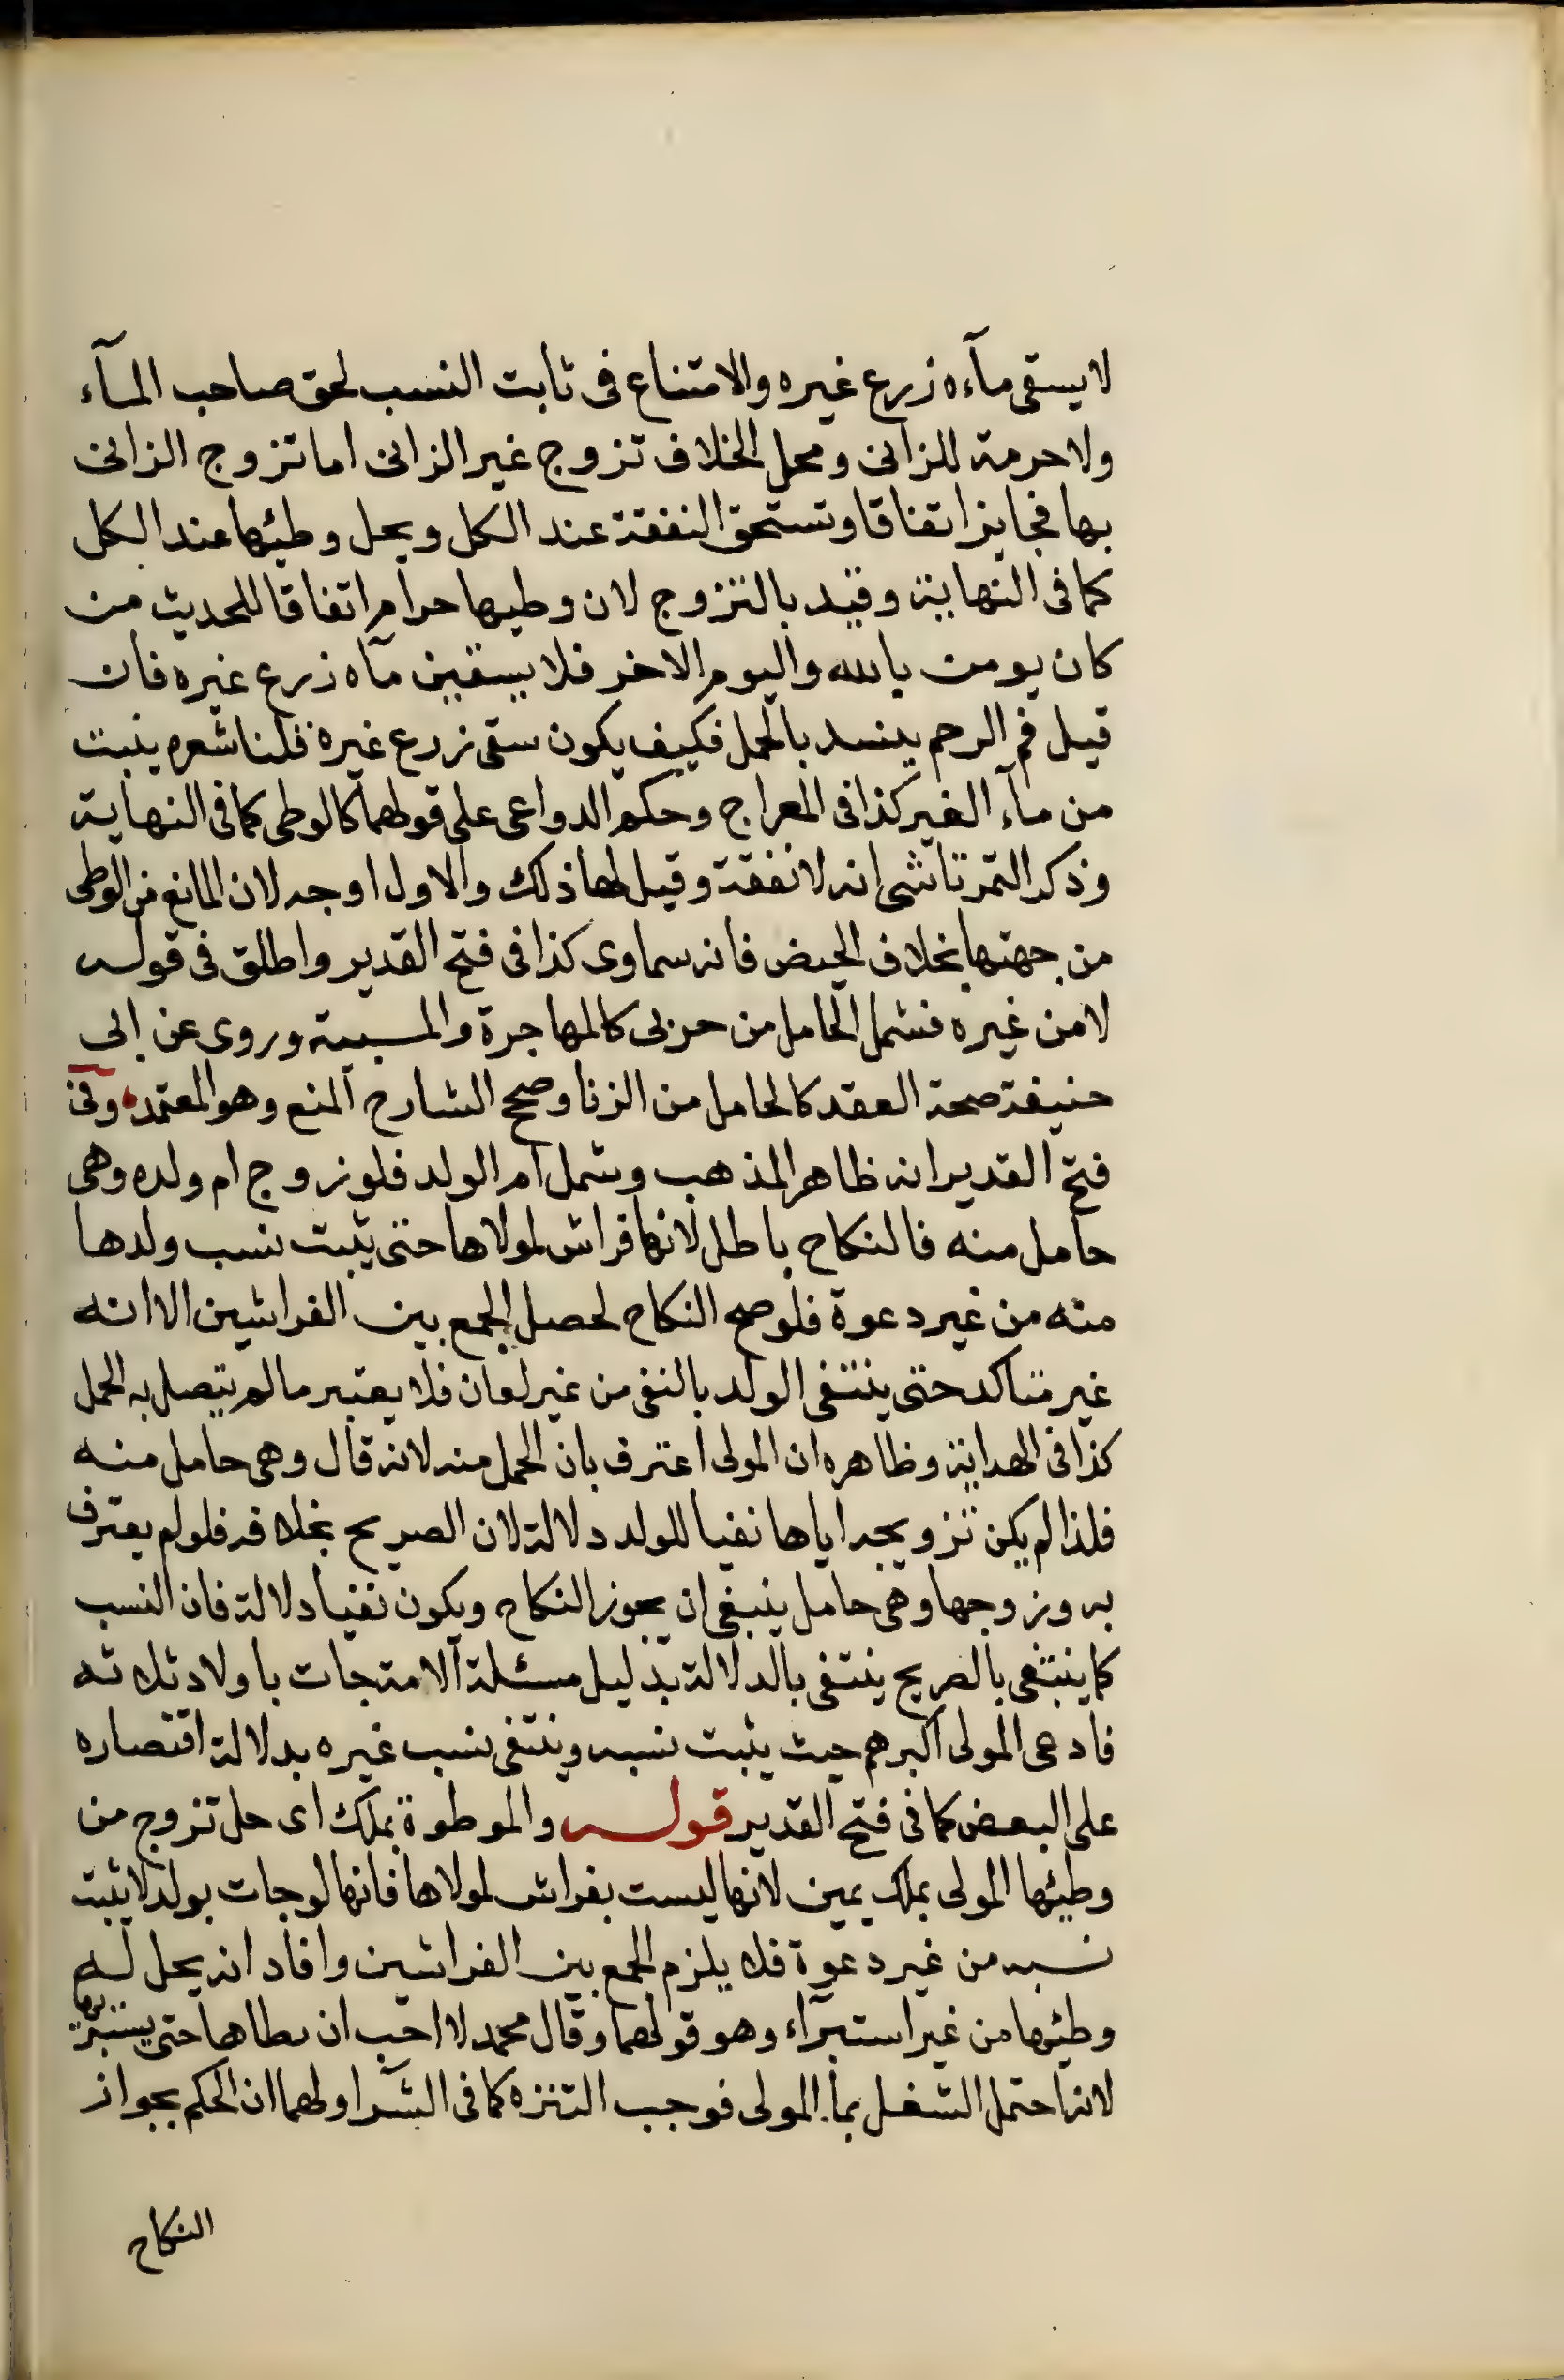 لا يسقى مآءه زرع غيره والامتناع فى ثابت النسب لحق صاحب المآء
ولا حرمة للزانى ومحل الخلاف تزوج غير الزانى اما تزوج الزانى
بها فجايز اتفاقا وتستحق النفقة عند الكل ويحل وطيئها عند الكل
كما فى النهاية وقيد بالتزوج لان وطيها حرام اتفاقا للحديث من
كان يومن بالله واليوم الاخر فلا يسقين مآه زرع غيره فان
قيل فم الرحم ينسد بالحمل فكيف يكون سقى زرع غيره قلنا شعره ينبت
من مآء الغير كذا فى المعراج وحكم الدواعى على قولهما كالوطى كما فى النهاية
وذكر التمرتاشى انه لا نفقة وقيل لها ذلك والاول اوجه لان المانع من الوطى
من جهتها بخلاف الحيض فانه سماوى كذا فى فتح القدير واطلق فى قوله
لا من غيره فشمل الحامل من حربى كالمهاجرة والمسبية وروى عن ابى
حنيفة صحة العقد كالحامل من الزنا وصحح الشارح المنع وهو المعتمد وفى
فتح القدير انه ظاهر المذهب وشمل ام الولد فلو زوج ام ولده وهى
حامل منه فالنكاح باطل لانها فراش لمولاها حتى يثبت نسب ولدها
منه من غير دعوة فلو صح النكاح لحصل الجمع بين الفراشين الا انه
غير متاكد حتى ينتفى الولد بالنفى من غير لعان فلا يعتبر ما لم يتصل به الحمل
كذا فى الهداية وظاهره ان المولى اعترف بان الحمل منه لانه قال وهى حامل منه
فلذا لم يكن تزويجه اياها نفيا للولد دلالة لان الصريح بخلافه فلو لم يعترف
به وزوجها وهى حامل ينبغى ان يجوز النكاح ويكون نفيا دلالة فان النسب
كما ينتفى بالصريح ينتفى بالدلالة بدليل مسئلة الامة جات باولاد ثلاثه
فادعى المولى اكبرهم حيث يثبت نسبه وينتفى نسب غيره بدلالة اقتصاره
على البعض كما فى فتح القدير قوله والموطوة بملك اى حل تزوج من
وطيئها المولى بملك يمين لانها ليست بفراش لمولاها فانها لو جات بولد لا يثبت
نسبه من غير دعوة فلا يلزم الجمع بين الفراشين وافاد انه يحل له
وطيئها من غير استبرآء وهو قولهما وقال محمد لا احب ان يطاها حتى يستبرئها
لانه احتمل الشغل بمآ المولى فوجب التنزه كما فى الشرا ولهما ان الحكم بجواز
النكاح